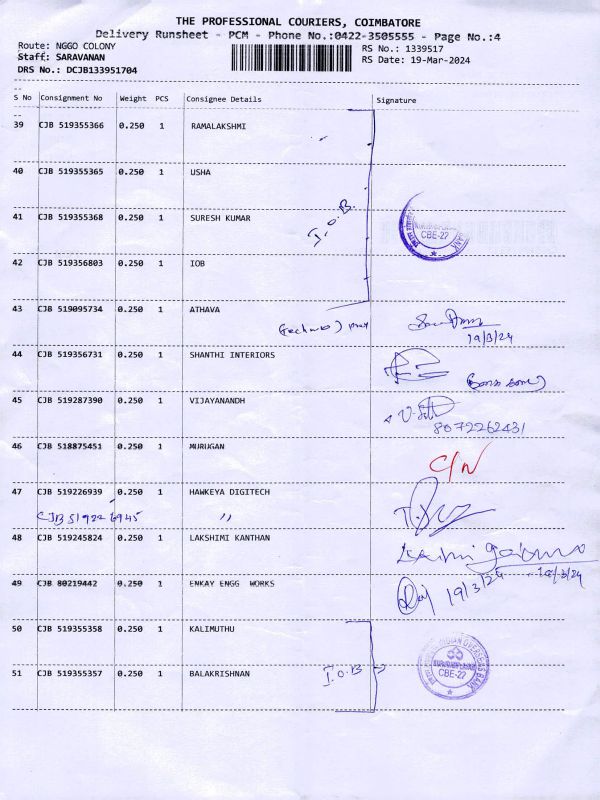 THE PROFESSIONAL COURIERS, COIMBATORE
Delivery Runsheet - PCM - Phone No.:0422-3505555 - Page No.:4
Route: NGGO COLONY RS No.: 1339517
Staff: SARAVANAN RS Date: 19-Mar-2024
DRS No.: DCJB133951704
S No Consignment No Weight PCS Consignee Details Signature
39 CJB 519355366 0.250 1 RAMALAKSHMI
40 CJB 519355365 0.250 1 USHA
I.O.B.
41 CJB 519355368 0.250 1 SURESH KUMAR
CBE-27
BANK
42 CJB 519356803 0.250 1 IOB
43 CJB 519095734 0.250 1 ATHAVA
19/3/24
44 CJB 519356731 0.250 1 SHANTHI INTERIORS
45 CJB 519287390 0.250 1 VIJAYANANDH
8072262431
46 CJB 518875451 0.250 1 MURUGAN
C/N
47 CJB 519226939 0.250 1 HAWKEYA DIGITECH
CJB 519226945 "
48 CJB 519245824 0.250 1 LAKSHIMI KANTHAN
49 CJB 80219442 0.250 1 ENKAY ENGG WORKS
19/3/24
50 CJB 519355358 0.250 1 KALIMUTHU
51 CJB 519355357 0.250 1 BALAKRISHNAN
I.O.B
INDIAN OVERSEAS BANK
CBE-27